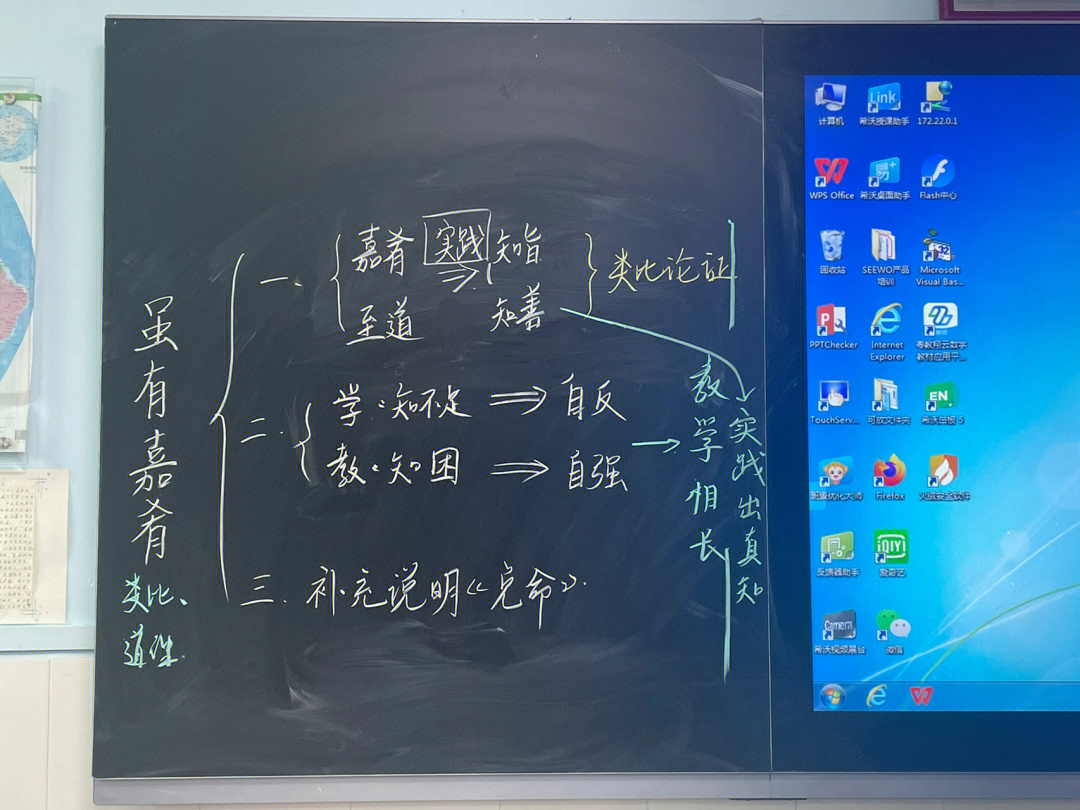 虽有嘉肴
类比、
道理
一.
嘉肴 实践 知旨
至道 知善
类比论证
二.
学:知不足 ⇒ 自反
教:知困 ⇒ 自强
→ 教学相长
实践出真知
三. 补充说明《兑命》.
计算机
希沃授课助手
172.22.0.1
WPS Office
希沃桌面助手
Flash中心
回收站
SEEWO产品
培训
Microsoft
Visual Bas...
PPTChecker
Internet
Explorer
粤教翔云数字
教材应用平...
TouchServ...
可放文件夹
希沃白板 5
班级优化大师
Firefox
火绒安全软件
反馈器助手
爱奇艺
希沃视频展台
微信
Link
易+
EN
iQIYI
Camera